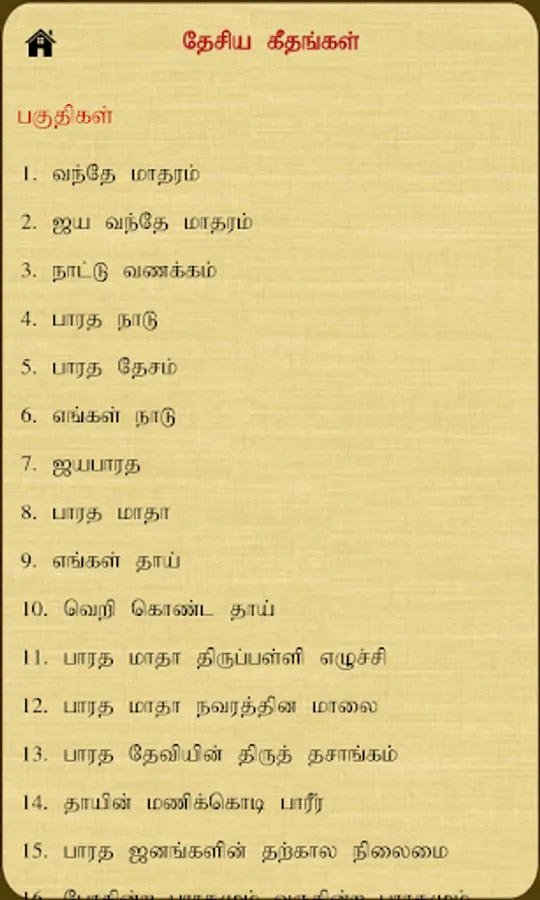 தேசிய கீதங்கள்
பகுதிகள்
1. வந்தே மாதரம்
2. ஜய வந்தே மாதரம்
3. நாட்டு வணக்கம்
4. பாரத நாடு
5. பாரத தேசம்
6. எங்கள் நாடு
7. ஜயபாரத
8. பாரத மாதா
9. எங்கள் தாய்
10. வெறி கொண்ட தாய்
11. பாரத மாதா திருப்பள்ளி எழுச்சி
12. பாரத மாதா நவரத்தின மாலை
13. பாரத தேவியின் திருத் தசாங்கம்
14. தாயின் மணிக்கொடி பாரீர்
15. பாரத ஜனங்களின் தற்கால நிலைமை
16. போகின்ற பாரதமும் வருகின்ற பாரதமும்